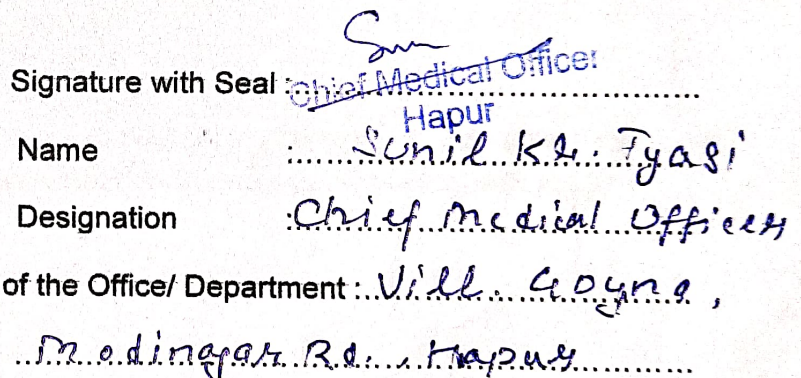 Signature with Seal : Chief Medical Officer
Hapur
Name : Sunil Kr. Tyagi
Designation : Chief Medical Officer
of the Office/ Department : Vill. Goyna,
Modinagar Rd., Hapur